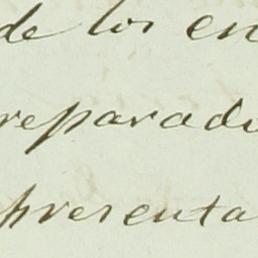 de los en
reparado
presenta